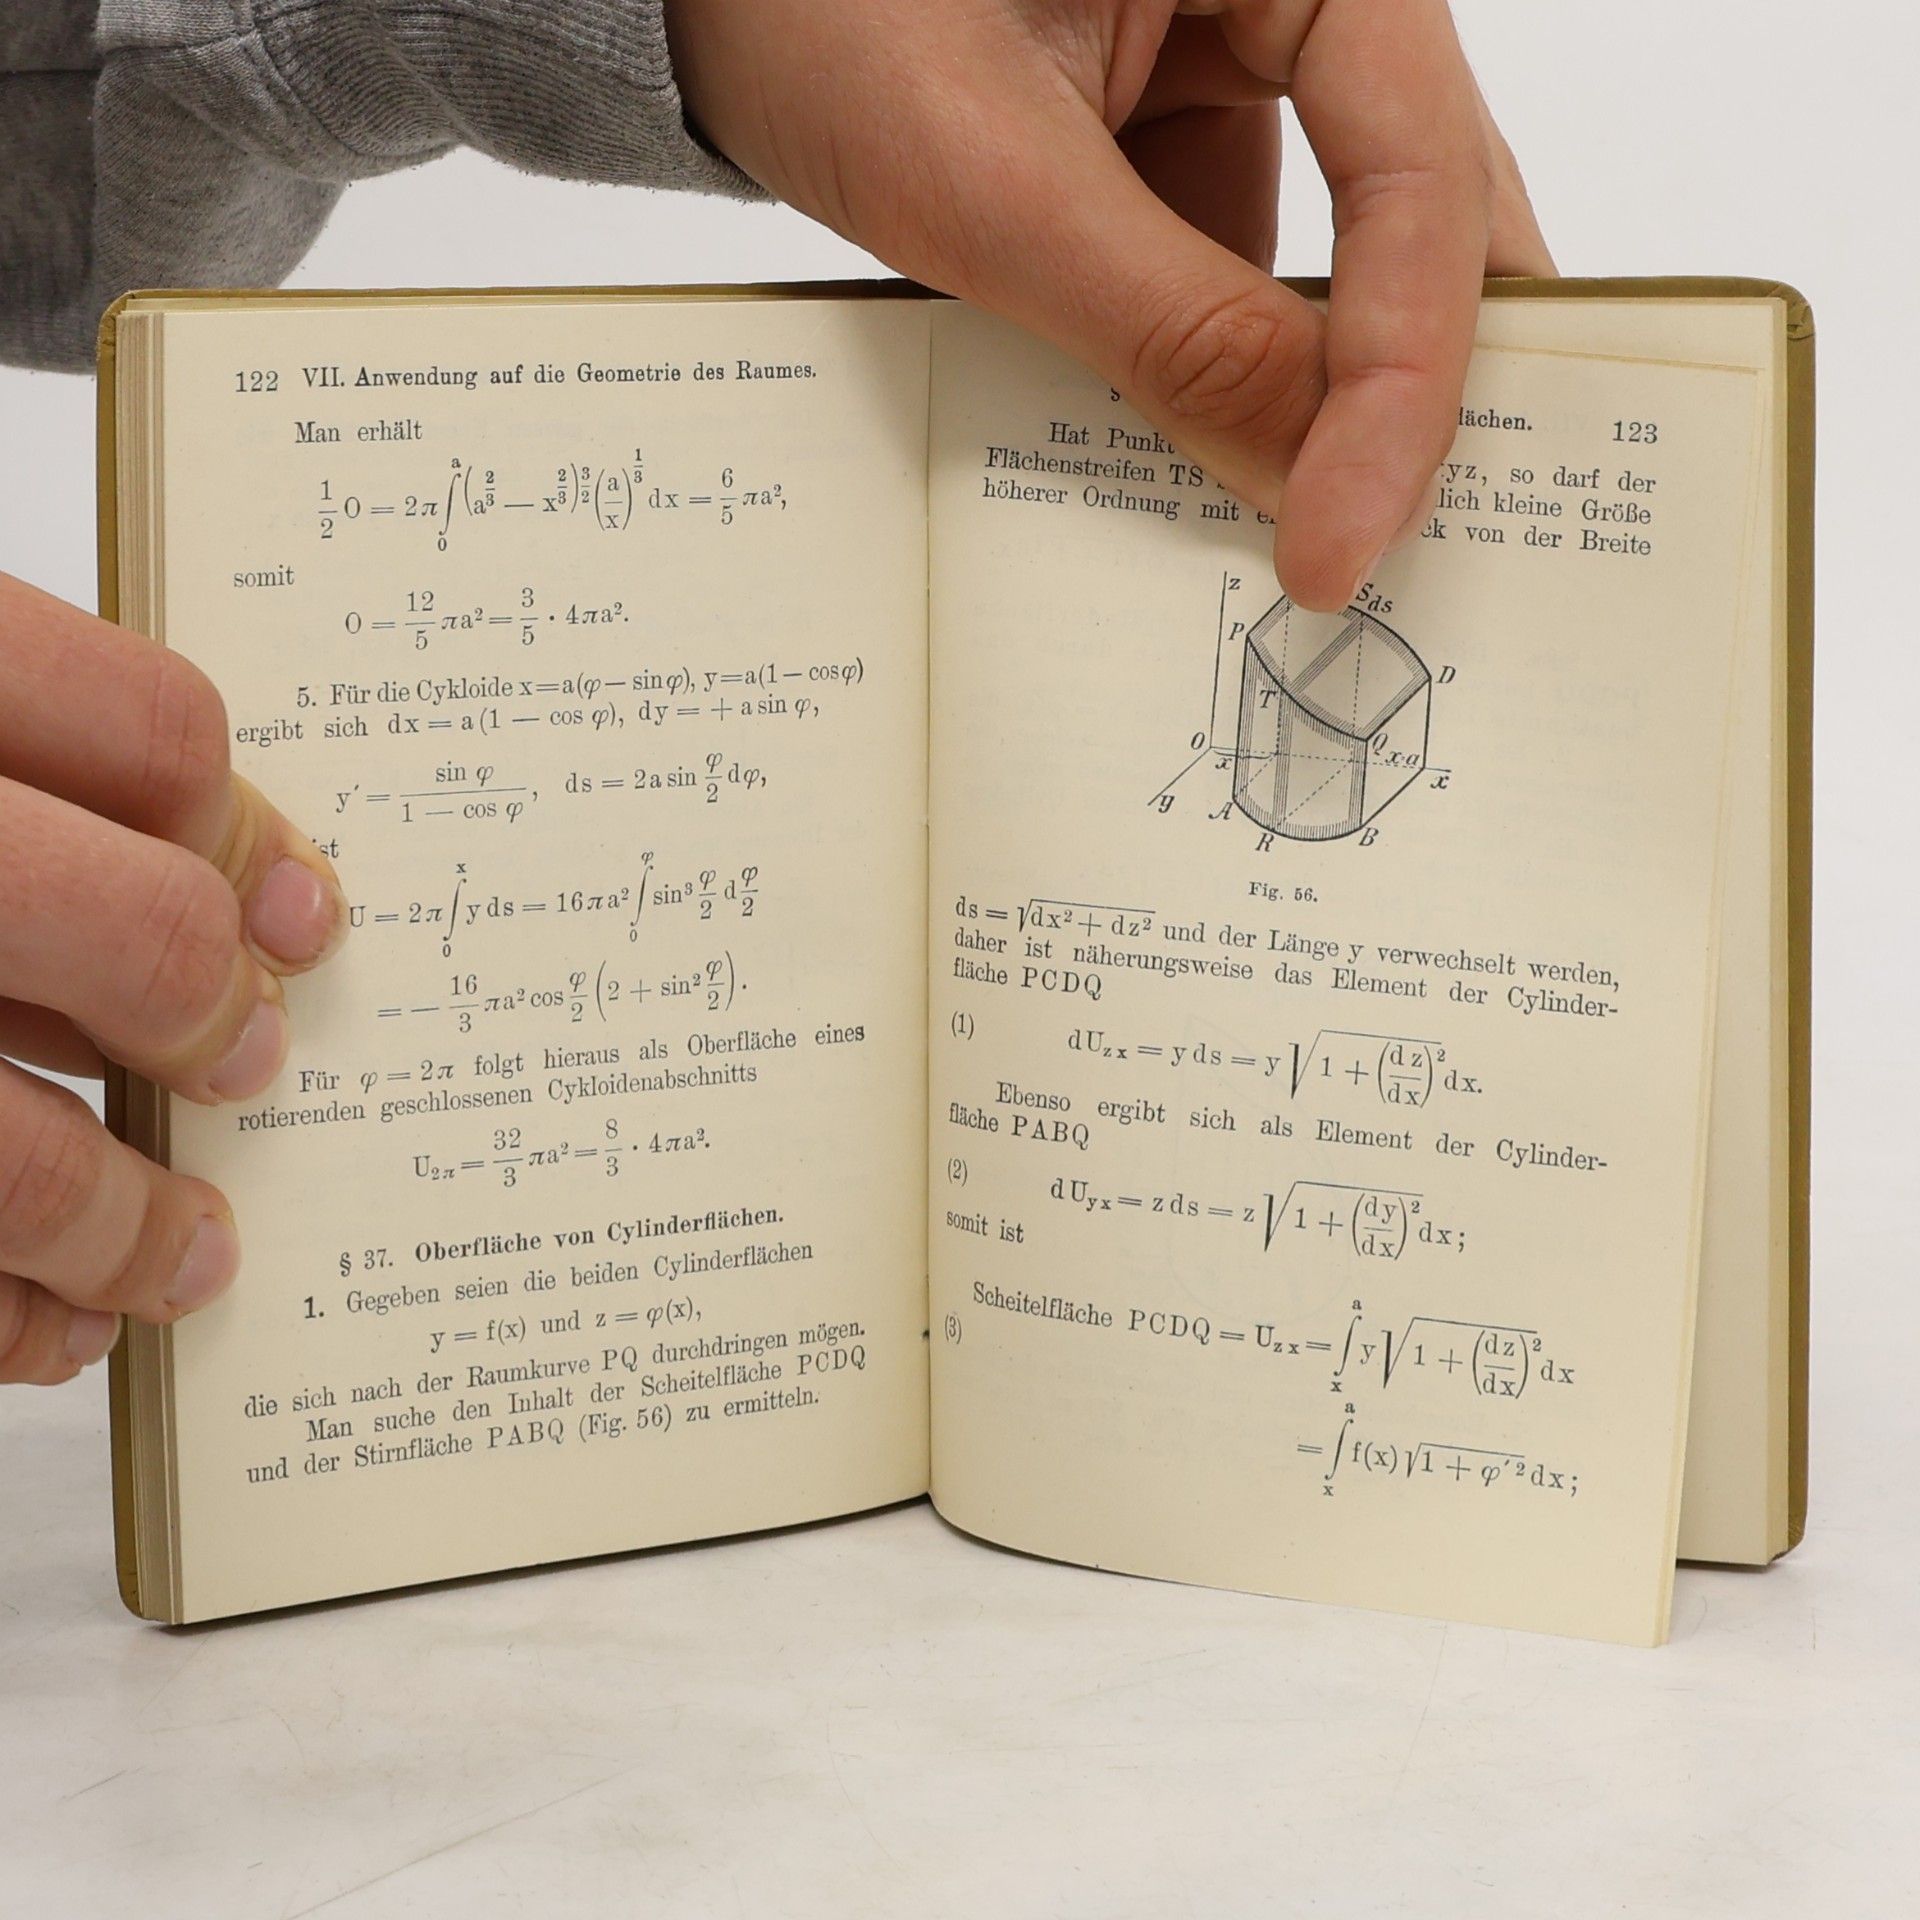 122 VII. Anwendung auf die Geometrie des Raumes.
Man erhält
1/2 O = 2π ∫₀ᵃ (a^(2/3) — x^(2/3))^(3/2) (a/x)^(1/3) dx = 6/5 πa²,
somit
O = 12/5 πa² = 3/5 · 4πa².
5. Für die Cykloide x=a(φ— sinφ), y=a(1—cosφ)
ergibt sich dx = a(1 — cos φ), dy = + a sin φ,
y′ = sin φ/(1 — cos φ), ds = 2a sin φ/2 dφ,
U = 2π ∫₀ˣ y ds = 16πa² ∫₀^φ sin³ φ/2 d φ/2
= — 16/3 πa² cos φ/2 (2 + sin² φ/2).
Für φ = 2π folgt hieraus als Oberfläche eines
rotierenden geschlossenen Cykloidenabschnitts
U₂π = 32/3 πa² = 8/3 · 4πa².
§ 37. Oberfläche von Cylinderflächen.
1. Gegeben seien die beiden Cylinderflächen
y = f(x) und z = φ(x),
die sich nach der Raumkurve PQ durchdringen mögen.
Man suche den Inhalt der Scheitelfläche PCDQ
und der Stirnfläche PABQ (Fig. 56) zu ermitteln.
123
Hat yz, so darf der
Flächenstreifen TS kleine Größe
höherer Ordnung mit von der Breite
z
S ds
P
D
T
O
Q
x
x-a
x
y
A
R
B
Fig. 56.
ds = √(dx² + dz²) und der Länge y verwechselt werden,
daher ist näherungsweise das Element der Cylinder-
fläche PCDQ
(1) dU_zx = y ds = y √(1 + (dz/dx)²) dx.
Ebenso ergibt sich als Element der Cylinder-
fläche PABQ
(2) dU_yx = z ds = z √(1 + (dy/dx)²) dx;
somit ist
(3) Scheitelfläche PCDQ = U_zx = ∫ₓᵃ y √(1 + (dz/dx)²) dx
= ∫ₓᵃ f(x) √(1 + φ′²) dx;